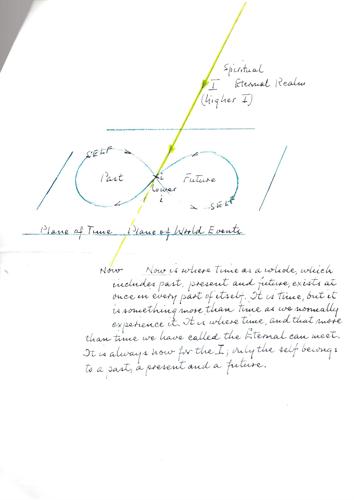 Spiritual
I Eternal Realm
(higher I)
SELF
i
Past
lower
Future
i
SELF
Plane of Time Plane of World Events
Now Now is where time as a whole, which
includes past, present and future, exists at
once in every part of itself. It is time, but it
is something more than time as we normally
experience it. It is where time, and that more
than time we have called the Eternal can meet.
It is always now for the I; only the self belongs
to a past, a present and a future.